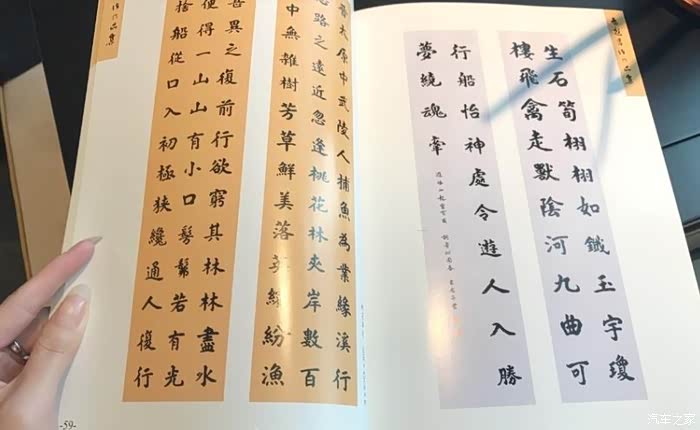 生石筍栩栩如鐵玉宇瓊
樓飛禽走獸陰河九曲可
行船怡神處令遊人入勝
夢繞魂牽
晉太原中武陵人捕魚為業緣溪行
忘路之遠近忽逢桃花林夾岸數百
中無雜樹芳草鮮美落英繽紛漁
異之復前行欲窮其林林盡水
便得一山山有小口髣髴若有光
捨船從口入初極狹纔通人復行
作品集
-59-
汽车之家